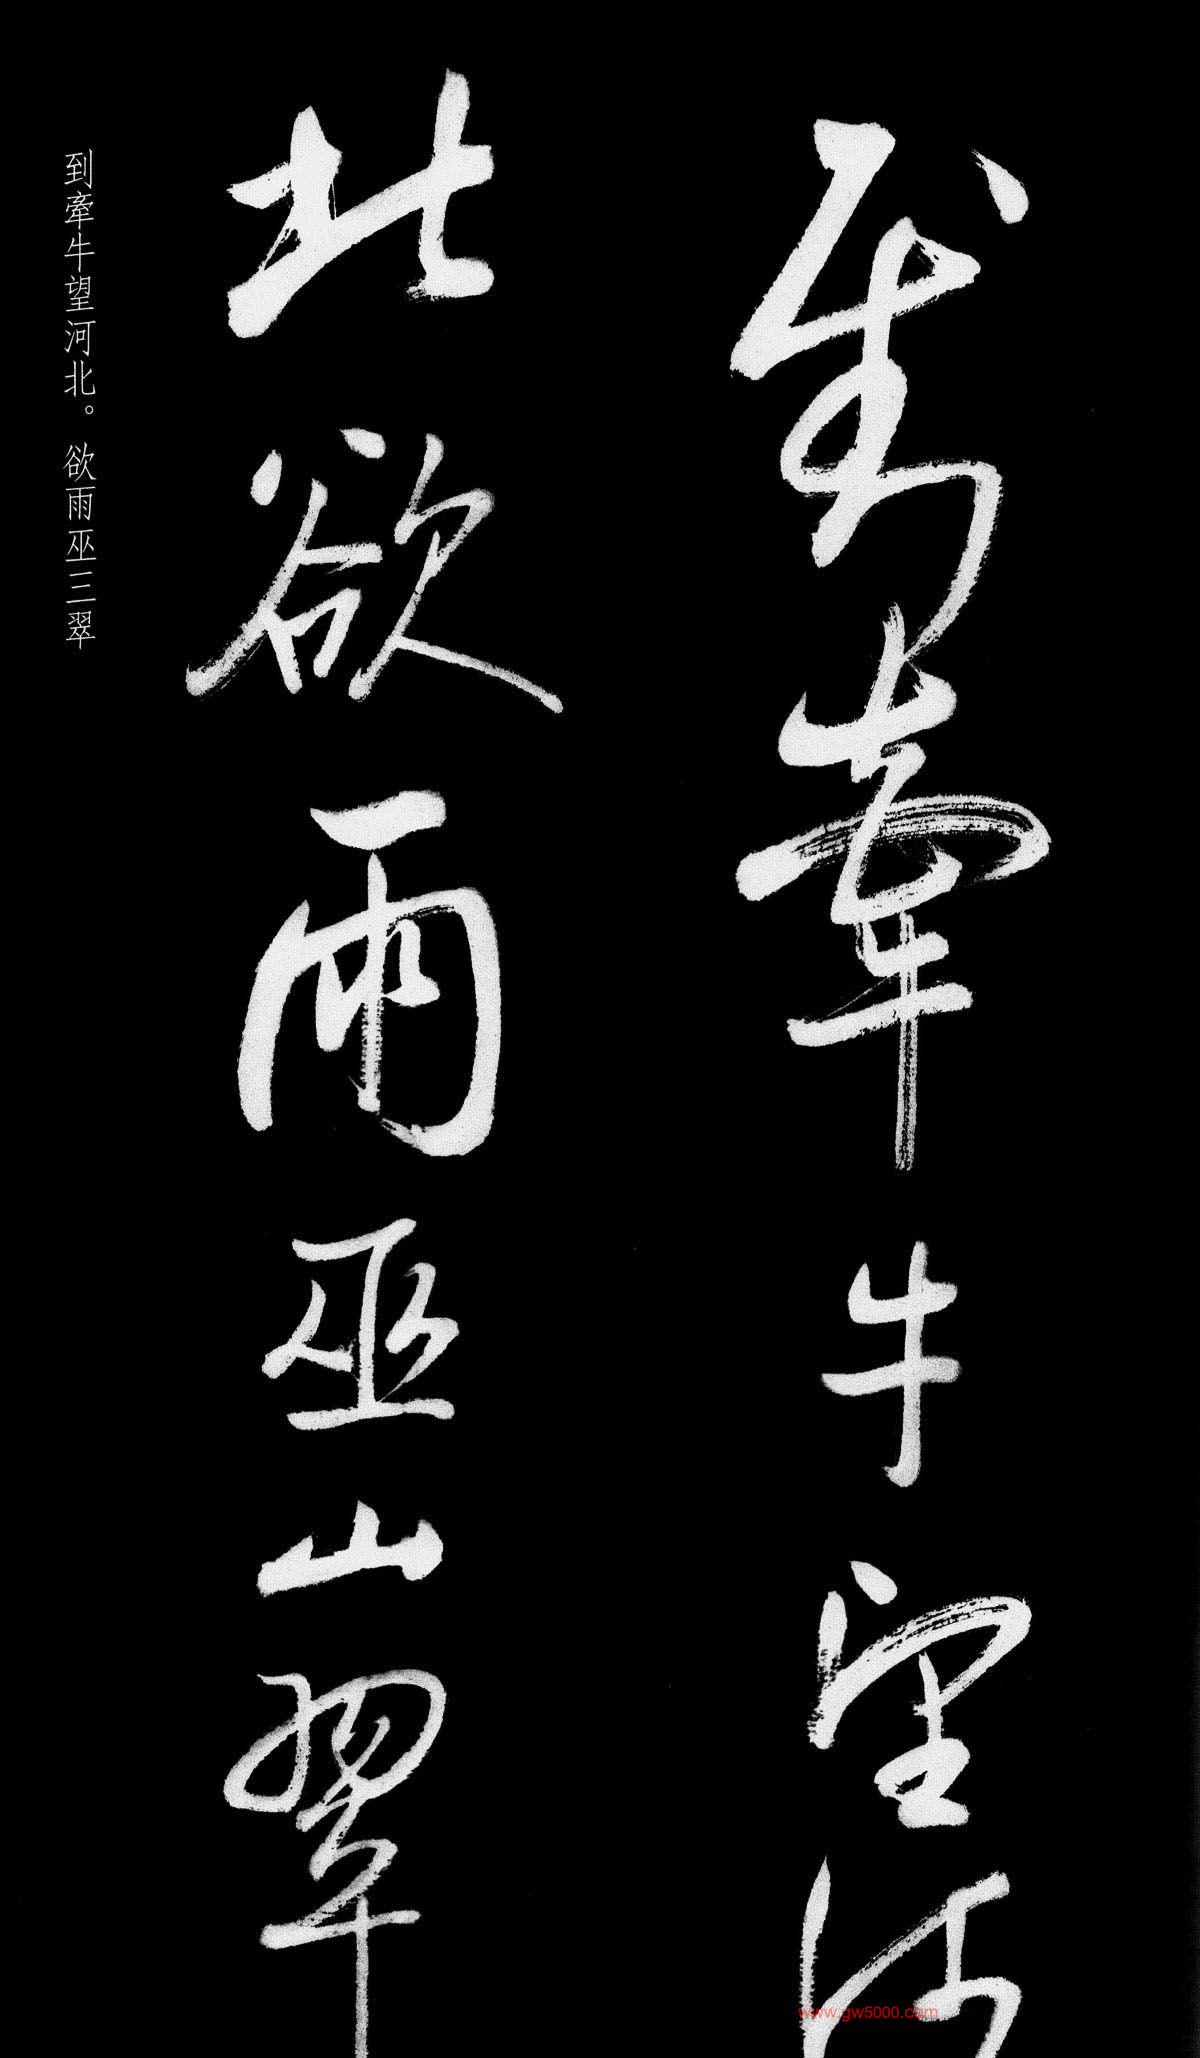 到牽牛望河
北欲雨巫山翠
到牽牛望河北。欲雨巫三翠
www.gw5000.com